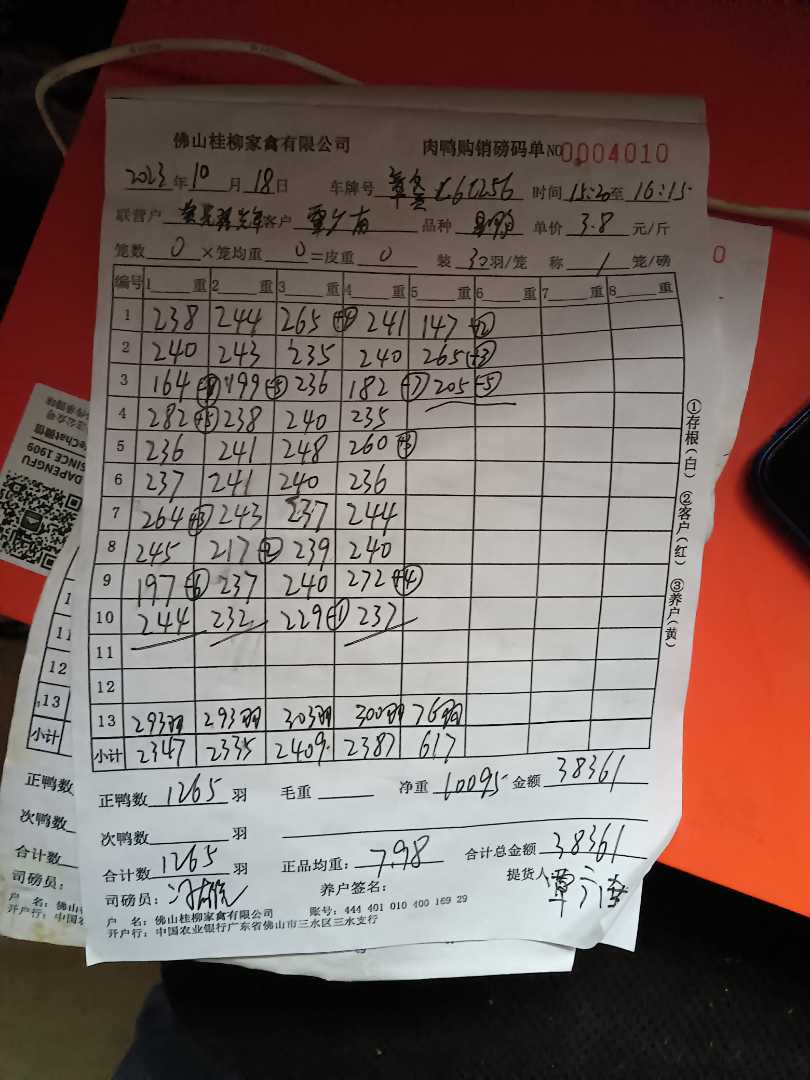 佛山桂柳家禽有限公司 肉鸭购销磅码单 NO 0004010
2023年10月18日 车牌号 L61256 时间 15:20至16:15
联营户 客户 品种 单价 3.8 元/斤
笼数 0 ×笼均重 0 =皮重 0 装 30羽/笼 称 1 笼/磅
编号 1 重 2 重 3 重 4 重 5 重 6 重 7 重 8 重
1 238 244 265 241 147 -2
2 240 243 235 240 265 +3
3 164 199 236 182 -7 205 -5
4 282 +5 238 240 235
5 236 241 248 260 +3
6 237 241 240 236
7 264 +3 243 237 244
8 245 217 -2 239 240
9 197 -6 237 240 272 +4
10 244 232 229 -1 237
11
12
13 293羽 293羽 303羽 300羽 76羽
小计 2347 2335 2409. 2387 617
正鸭数 1265 羽 毛重 净重 10095 金额 38361
次鸭数 羽
合计数 1265 羽 正品均重: 7.98 合计总金额 38361
司磅员: 养户签名: 提货人
户 名: 佛山桂柳家禽有限公司 账号: 444 401 010 400 169 29
开户行: 中国农业银行广东省佛山市三水区三水支行
①存根(白) ②客户(红) ③养户(黄)
0
DAPENGFU
SINCE 1909
11
12
13
小计
正鸭数
次鸭数
合计数
司磅员:
户 名: 佛山
开户行: 中国